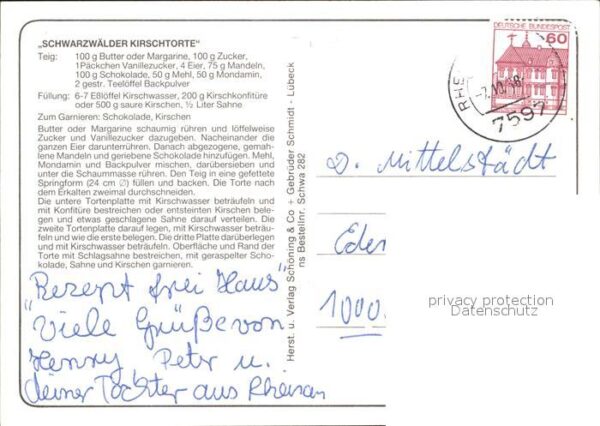 „SCHWARZWÄLDER KIRSCHTORTE"
Teig: 100 g Butter oder Margarine, 100 g Zucker,
1 Päckchen Vanillezucker, 4 Eier, 75 g Mandeln,
100 g Schokolade, 50 g Mehl, 50 g Mondamin,
2 gestr. Teelöffel Backpulver
Füllung: 6-7 Eßlöffel Kirschwasser, 200 g Kirschkonfitüre
oder 500 g saure Kirschen, ½ Liter Sahne
Zum Garnieren: Schokolade, Kirschen
Butter oder Margarine schaumig rühren und löffelweise
Zucker und Vanillezucker dazugeben. Nacheinander die
ganzen Eier darunterrühren. Danach abgezogene, gemah-
lene Mandeln und geriebene Schokolade hinzufügen. Mehl,
Mondamin und Backpulver mischen, darübersieben und
unter die Schaummasse rühren. Den Teig in eine gefettete
Springform (24 cm ∅) füllen und backen. Die Torte nach
dem Erkalten zweimal durchschneiden.
Die untere Tortenplatte mit Kirschwasser beträufeln und
mit Konfitüre bestreichen oder entsteinten Kirschen bele-
gen und etwas geschlagene Sahne darauf verteilen. Die
zweite Tortenplatte darauf legen, mit Kirschwasser beträu-
feln und wie die erste belegen. Die dritte Platte darüberlegen
und mit Kirschwasser beträufeln. Oberfläche und Rand der
Torte mit Schlagsahne bestreichen, mit geraspelter Scho-
kolade, Sahne und Kirschen garnieren.
„Rezept frei Haus"
Viele Grüße von
Henny Peter u.
deiner Tochter aus Rheinau
Herst. u. Verlag Schöning & Co + Gebrüder Schmidt · Lübeck
ns Bestellnr. Schwa 282
DEUTSCHE BUNDESPOST
60
RHE
7597
D. Mittelstädt
Eden
1000
privacy protection
Datenschutz